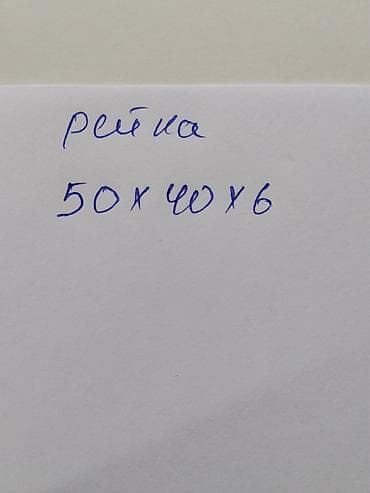 рейка
50х40х6